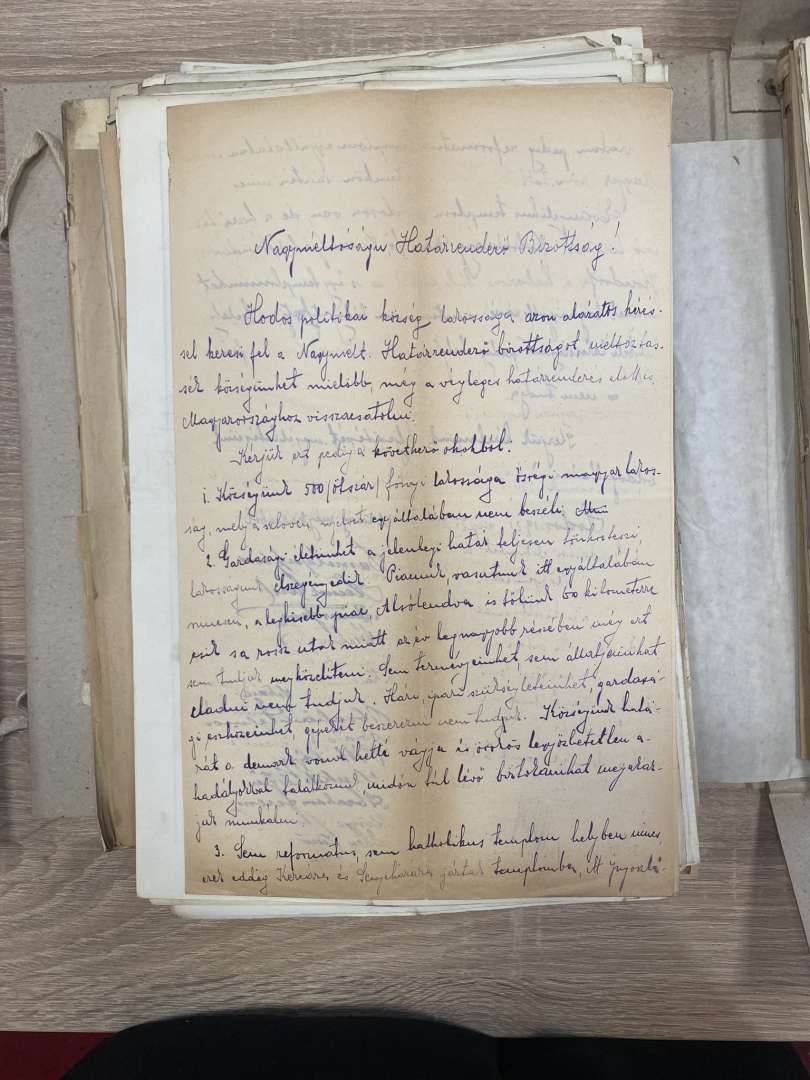 Nagyméltóságu Határrendező Bizottság!
Hodos politikai község lakossága azon alázatos kérés-
sel keresi fel a Nagymélt. Határrendező bizottságot méltóztas-
sék községünket mielőbb, még a végleges határrendezés előtt is
Magyarországhoz visszacsatolni.
Kérjük ezt pedig a következő okokból:
1. Községünk 500/ötszáz/ főnyi lakossága ősrégi magyar lakos-
ság, mely a szlovén nyelvet egyáltalában nem beszéli.
2. Gazdasági életünket a jelenlegi határ teljesen tönkreteszi,
lakosságunk elszegényedik. Piacunk, vasutunk itt egyáltalában
nincsen, a legkisebb piac, Alsólendva is tőlünk 60 kilométerre
esik s a rossz utak miatt az év legnagyobb részében még ezt
sem tudjuk megközelíteni. Sem terményeinket, sem állatjainkat
eladni nem tudjuk. Házi, ipari szükségleteinket, gazdasá-
gi eszközeinket, gépeket beszerezni nem tudjuk. Községünk hatá-
rát a demark. vonal ketté vágja és örökös legyőzhetetlen a-
kadályokkal találkozunk midőn túl lévő birtokainkat megakar-
juk munkálni.
3. Sem református, sem katholikus templom helyben nincs,
ezek eddig Kercára és jártak templomba,